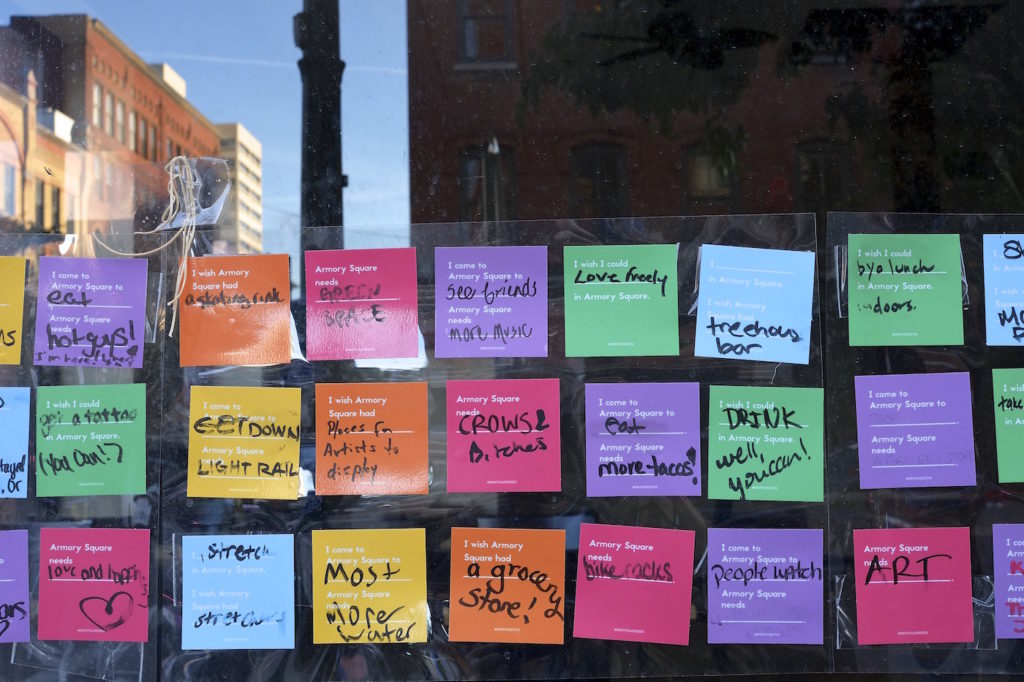 I come to
Armory Square to
eat
Armory Square
needs
hot guys!
I wish Armory
Square had
a skating rink
Armory Square
needs
GREEN
SPACE
I come to
Armory Square to
see friends
Armory Square
needs
MORE MUSIC
I wish I could
Love freely
in Armory Square.
I wish Armory
Square had
treehouse
bar
I wish I could
byo lunch
in Armory Square.
indoors.
get a tattoo
in Armory Square.
(You can!)
I come to
Armory Square to
GET DOWN
Armory Square
needs
LIGHT RAIL
I wish Armory
Square had
Places for
Artists to
display
Armory Square
needs
CROWS &
Bitches
I come to
Armory Square to
eat
Armory Square
needs
more tacos!
I wish I could
DRINK
in Armory Square.
well,
you can!
I come to
Armory Square to
Armory Square
needs
take
Armory Square
needs
love and happiness
stretch
in Armory Square.
I wish Armory
Square had
I come to
Armory Square to
Most
Armory Square
needs
More
water
I wish Armory
Square had
a grocery
store!
Armory Square
needs
bike racks
I come to
Armory Square to
People watch
Armory Square
needs
Armory Square
needs
ART